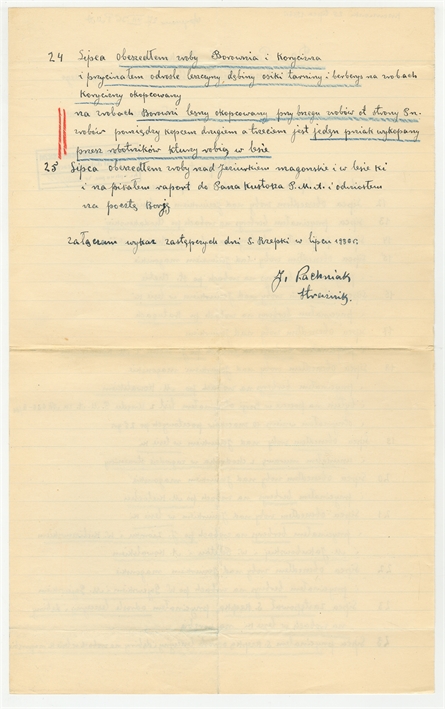 24 Lipca obeszedłem zroby Borownia i Korycizna
i przycinałem odrośle leszczyny dębiny osiki tarniny i berberys na zrobach
Korycizny okopcowany
na zrobach Borowni lesny okopcowany przy brzegu zrobów od strony Pn.
zrobów pomiędzy kopcem drugiem a trzeciem jest jeden pniak wykopany
przez robotników kturzy robią w lesie
25 Lipca obeszedłem zroby nad Jeziorkiem i w lesie
i na pisałem raport do Pana Kustosza P.M.A. i odniosłem
na pocztę
Załączam wykaz zastępczych dni S. Rzepki w lipcu 1930 r.
J. Pachniak
Strażnik.